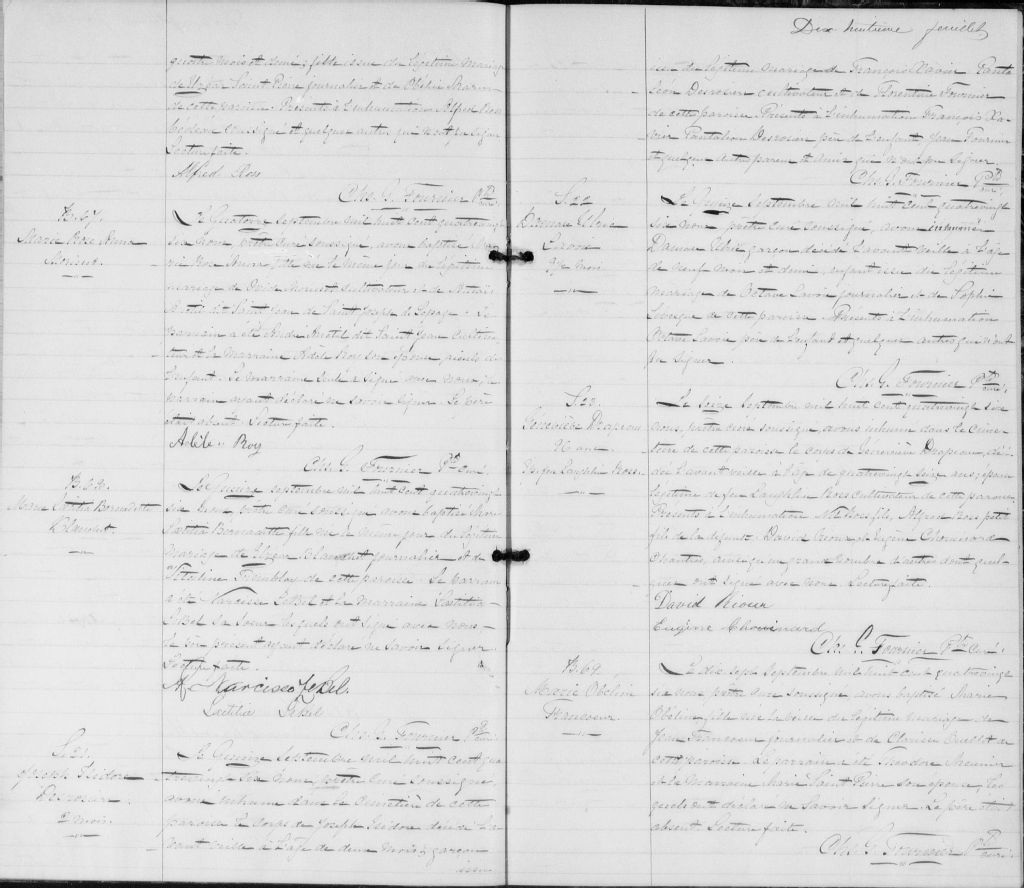 quatre mois et demi, fille issue du légitime mariage
de Saint Pierre journalier et de Obéline
de cette paroisse. Présents à l'inhumation Alfred Ross
bedeau soussigné et quelques autres qui n'ont pu signer
Lecture faite.
Alfred Ross
Chs. G. Fournier Ptre curé.
B. 67.
Marie Rose Anna
Le Quatorze septembre mil huit cent quatrevingt
six nous prêtre curé soussigné, avons baptisé Ma-
rie Rose Anna fille née le même jour du légitime
mariage de Ovide cultivateur et de
dit Saint Jean de Saint Joseph de Lepage. Le
parrain a été André dit Saint Jean cultiva-
teur et la marraine Adèle Roy son épouse
l'enfant. La marraine seule a signé avec nous, le
parrain ayant déclaré ne savoir signer. Le père
était absent. Lecture faite.
Adèle Roy
Chs. G. Fournier Ptre curé.
B. 68.
Marie Laetitia Bernadette
Blanchet.
Le quinze septembre mil huit cent quatrevingt
six nous prêtre curé soussigné avons baptisé Marie
Laetitia Bernadette fille née le même jour du légitime
mariage de Elzéar Blanchet journalier et de
Tremblay de cette paroisse. Le parrain
a été Narcisse LeBel et la marraine Laetitia
LeBel sa soeur lesquels ont signé avec nous,
le père présent ayant déclaré ne savoir signer
Lecture faite.
Narcisse LeBel.
Laetitia LeBel
Chs. G. Fournier Ptre curé.
S. 21.
Joseph Isidore
Desrosier
2 mois.
Le Quinze septembre mil huit cent qua-
trevingt six nous prêtre curé soussigné,
avons inhumé dans le cimetière de cette
paroisse le corps de Joseph Isidore décédé l'a-
vant veille à l'âge de deux mois, garçon
issu
Dix huitième feuillet
issu du légitime mariage de François Xavier Panta-
léon Desrosier cultivateur et de Florentine Fournier
de cette paroisse. Présents à l'inhumation François Xa-
vier Pantaléon Desrosier père de l'enfant, Jean Fournier
et quelques autres parents et amis qui n'ont su signer.
Chs. G. Fournier Ptre curé.
S. 22
Damase Elzéar
Lavoie
9½ mois
Le Quinze septembre mil huit cent quatrevingt
six nous prêtre curé soussigné, avons inhumé
Damase garçon décédé l'avant veille à l'âge
de neuf mois et demi, enfant issu du légitime
mariage de Octave Lavoie journalier et de Sophie
Levesque de cette paroisse. Présents à l'inhumation
Octave Lavoie père de l'enfant et quelques autres qui n'ont
pu signer.
Chs. G. Fournier Ptre curé.
S. 23.
Geneviève Drapeau
96 ans
Veuve Laughlin Ross.
Le Seize Septembre mil huit cent quatrevingt six
nous, prêtre curé soussigné, avons inhumé dans le cime-
tière de cette paroisse le corps de Geneviève Drapeau, décé-
dée l'avant veille à l'âge de quatrevingt seize ans, épouse
légitime de feu Laughlin Ross cultivateur de cette paroisse.
Présents à l'inhumation Ross fils, Ross petit
fils de la défunte. David Rioux et Eugène Chouinard
Chantres, ainsi qu'un grand nombre d'autres dont quel-
ques ont signé avec nous. Lecture faite.
David Rioux
Eugène Chouinard
Chs. G. Fournier Ptre Curé.
B. 69
Marie Obéline
Francoeur.
Le dix sept Septembre mil huit cent quatrevingt
six nous prêtre curé soussigné avons baptisé Marie
Obéline fille née la veille du légitime mariage de
Jean Francoeur journalier et de Clarisse Ouellet de
cette paroisse. Le parrain a été Théodore Meunier
et la marraine Marie Saint Pierre son épouse, les-
quels ont déclaré ne savoir signer. Le père était
absent. Lecture faite.
Chs. G. Fournier Ptre curé.